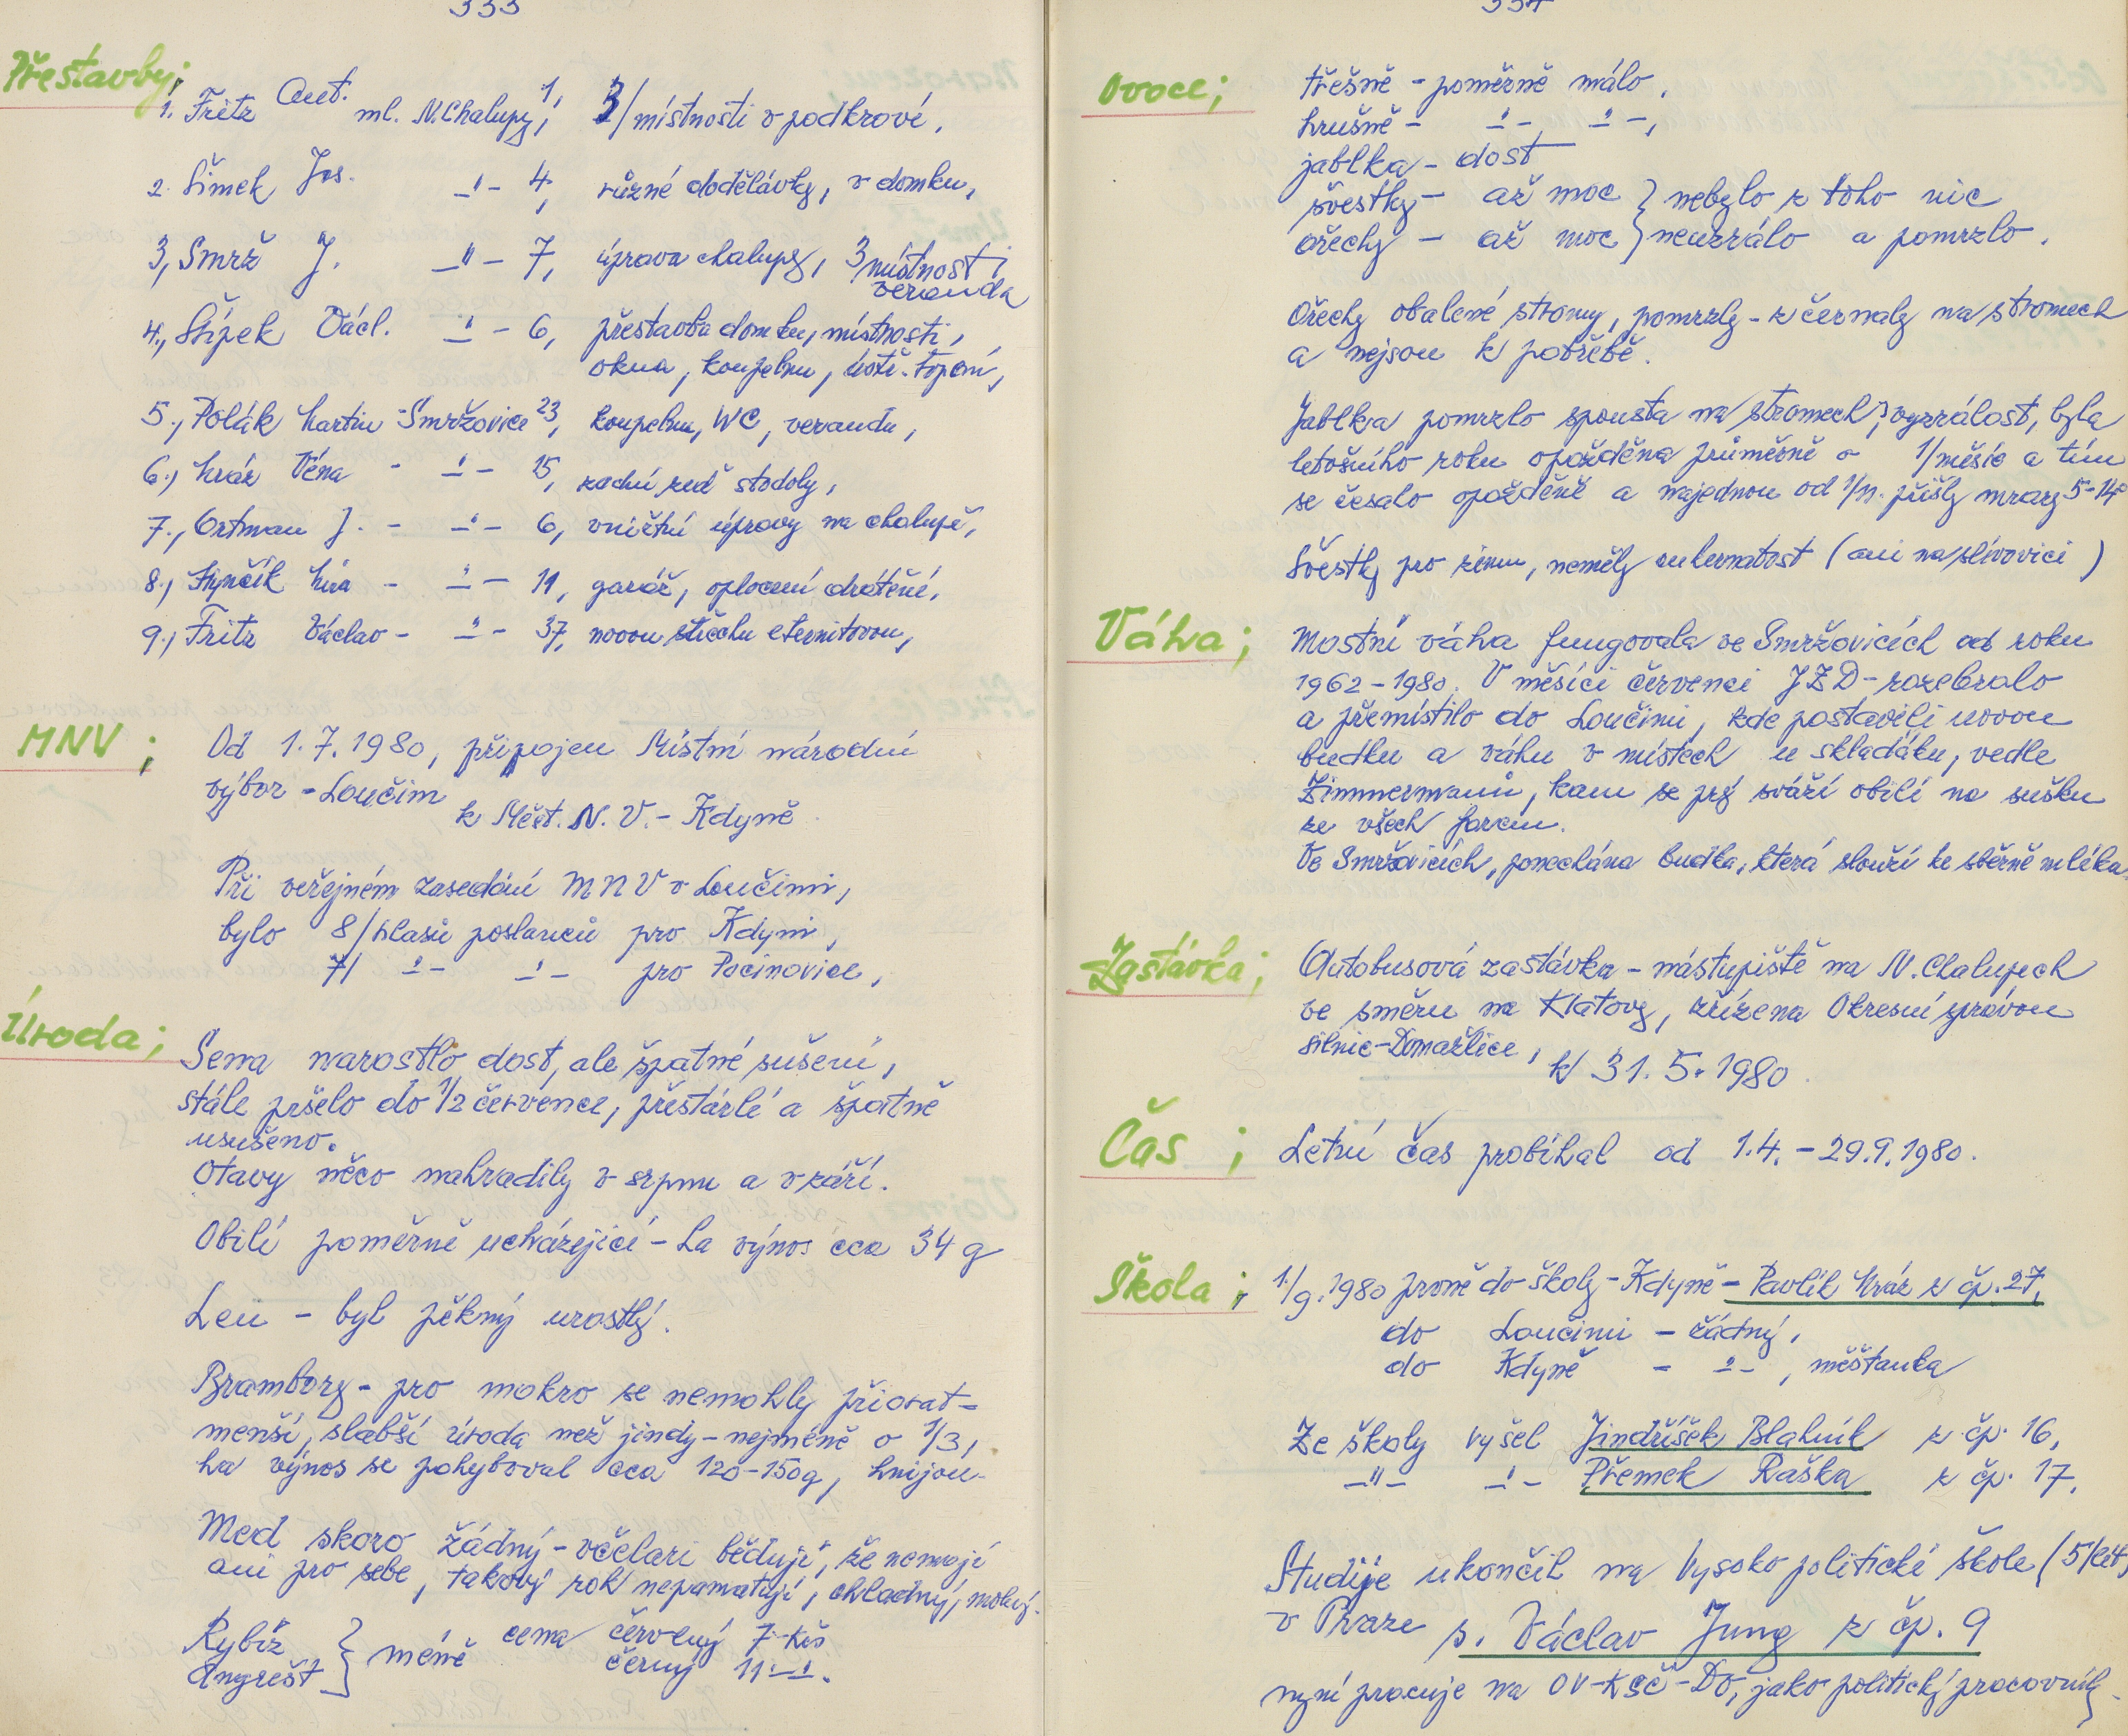 333
Přestavby;
1. Fritz Ant. ml. N. Chalupy 1, 3/ místnosti v podkroví,
2. Šimek Jos. -"- 4, různé dodělávky, v domku,
3, Smrž J. -"- 7, úprava chalupy, 3 místnosti
veranda
4., Štípek Václ. -"- 6, přestavba domku, místnosti,
okna, koupelnu, ústř. topení,
5., Polák Martin - Smržovice 23, koupelnu, WC, verandu,
6., Král Véna - -"- 15, zadní zeď stodoly,
7., Ortman J. - -"- 6, vnitřní úpravy na chalupě,
8., Hynčík Míra - -"- 11, garáž, oplocení drátěné,
9., Fritz Václav - -"- 37, novou střechu eternitovou,
MNV;
Od 1.7.1980, připojen Místní národní
výbor - Loučim
k Měst. N. V. - Kdyně
Při veřejném zasedání MNV v Loučimi,
bylo 8/ hlasů poslanců pro Kdyni,
7/ -"- -"- pro Pocinovice,
Úroda;
Sena narostlo dost, ale špatné sušení,
stále pršelo do 1/2 července, přestárlé a špatně
usušeno.
Otavy něco nahradily v srpnu a v září.
Obilí poměrně ucházející - ha výnos cca 34 q
Len - byl pěkný urostlý.
Brambory - pro mokro se nemohly přiorat -
menší, slabší úroda než jindy - nejméně o 1/3,
ha výnos se pohyboval cca 120-150q, hnijou.
Med skoro žádný - včelaři bědují, že nemají
ani pro sebe, takový rok nepamatují, chladný, mokrý.
Rybíz } méně cena červený 7.- Kčs
Angrešt černý 11.- -"-.
334
Ovoce;
třešně - poměrně málo,
hrušně - -"- -"-,
jablka - dost
švestky - až moc } nebylo z toho nic
ořechy - až moc } neuzrálo a pomrzlo.
Ořechy obalené stromy, pomrzly - zčernaly na stromech
a nejsou k potřebě.
Jablka pomrzlo spousta na stromech, vyzrálost, byla
letošního roku opožděna průměrně o 1/měsíc a tím
se česalo opožděně a najednou od 1/11. přišly mrazy 5-14°
Švestky pro zimu, neměly cukernatost (ani na slivovici)
Váha;
Mostní váha fungovala ve Smržovicích od roku
1962-1980. V měsíci červenci JZD - rozebralo
a přemístilo do Loučimi, kde postavili novou
budku a váhu v místech u skladáku, vedle
Zimmermanů, kam se prý sváží obilí na sušku
ze všech farem.
Ve Smržovicích, ponechána budka, která slouží ke sběrně mléka.
Zastávka;
Autobusová zastávka - nástupiště na N. Chalupech
ve směru na Klatovy, zřízena Okresní správou
silnic - Domažlice, k 31.5.1980.
Čas;
Letní čas probíhal od 1.4. - 29.9.1980.
Škola;
1./9.1980 prvně do školy - Kdyně - Pavlík Král z čp. 27,
do Loučimi - žádný,
do Kdyně - -"-, měšťanka
Ze školy vyšel Jindříšek Blahník z čp. 16,
-"- -"- Přemek Raška z čp. 17,
Studije ukončil na Vysoko politické škole (5/let)
v Praze s. Václav Jung z čp. 9
nyní pracuje na OV-KSČ-DO, jako politický pracovník.